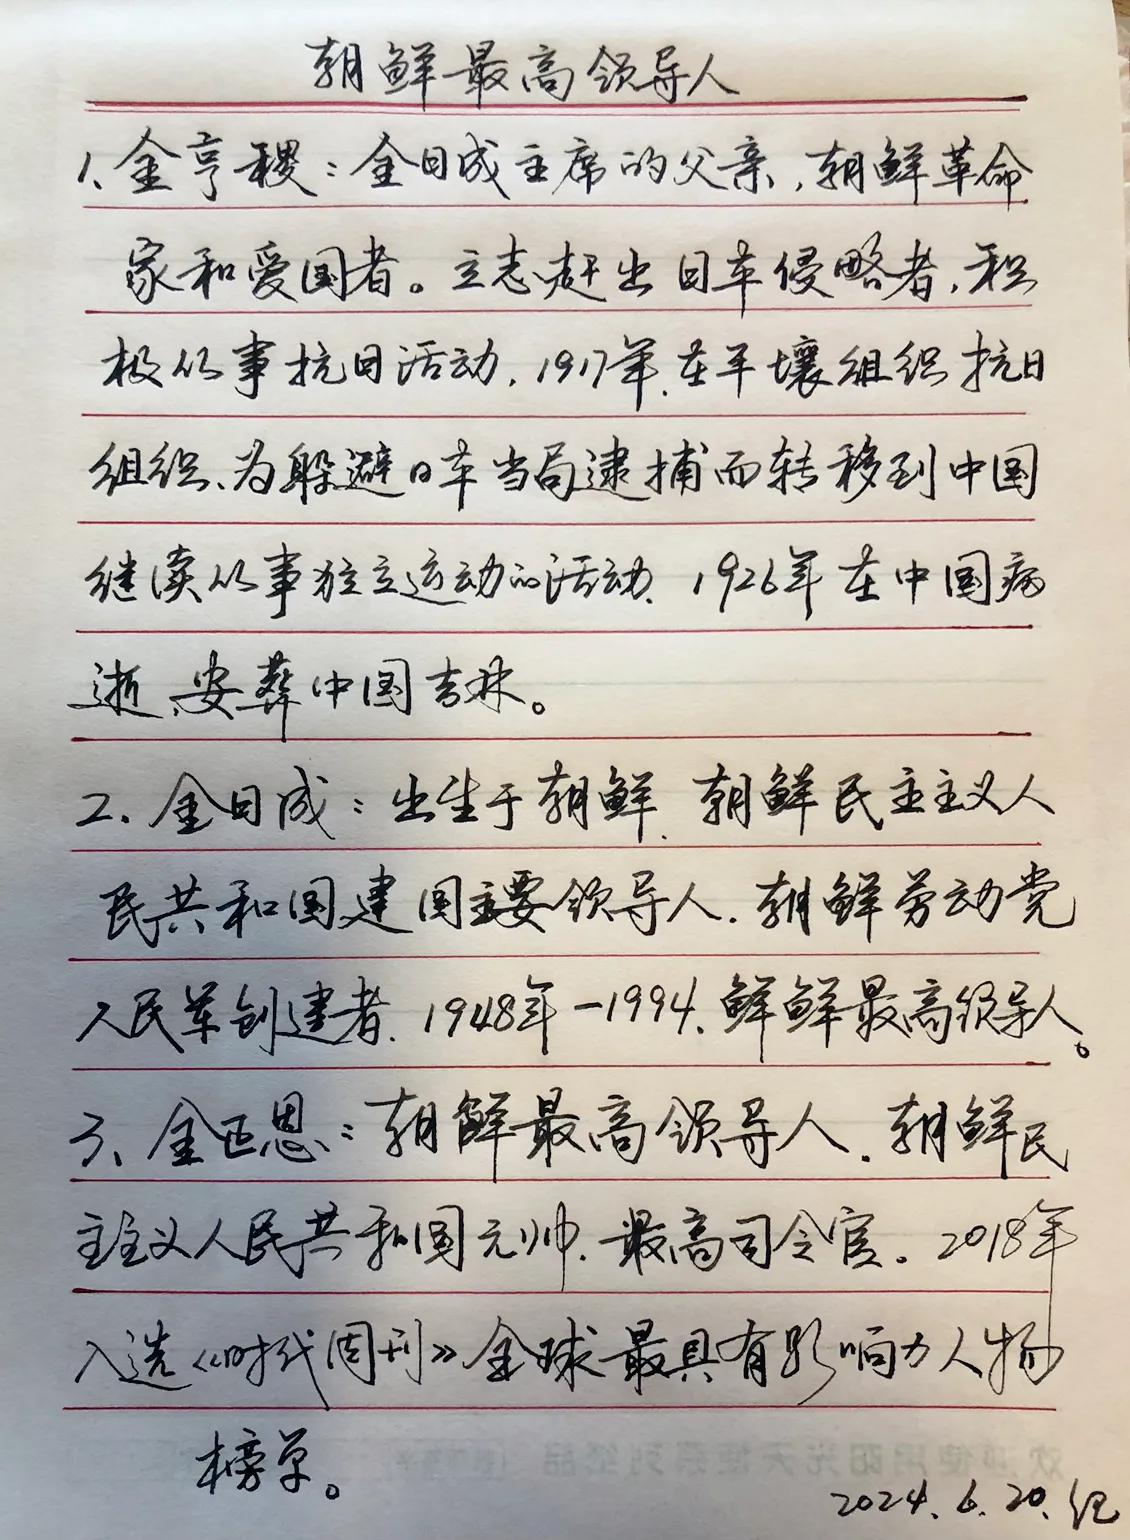 朝鲜最高领导人
1、金亨稷：金日成主席的父亲，朝鲜革命
家和爱国者。立志赶出日本侵略者，积
极从事抗日活动，1917年，在平壤组织抗日
组织、为躲避日本当局逮捕而转移到中国
继续从事独立运动的活动、1926年在中国病
逝、安葬中国吉林。
2、金日成：出生于朝鲜、朝鲜民主主义人
民共和国建国主要领导人、朝鲜劳动党
人民军创建者、1948年-1994、鲜鲜最高领导人。
3、金正恩：朝鲜最高领导人、朝鲜民
主主义人民共和国元帅、最高司令官。2018年
入选《时代周刊》全球最具有影响力人物
榜单。
2024.6.20.